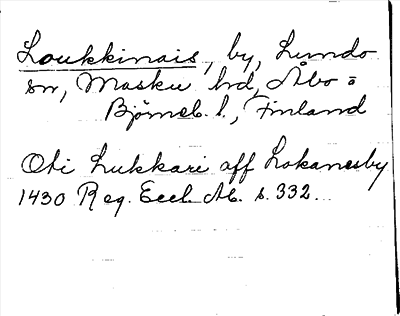 Loukkinais, by, Lundo
sn, Masku hd, Åbo o
Björneb. l., Finland
Oti Lukkari aff Lokanesby
1430 Reg. Eccl. Ab. s. 332.